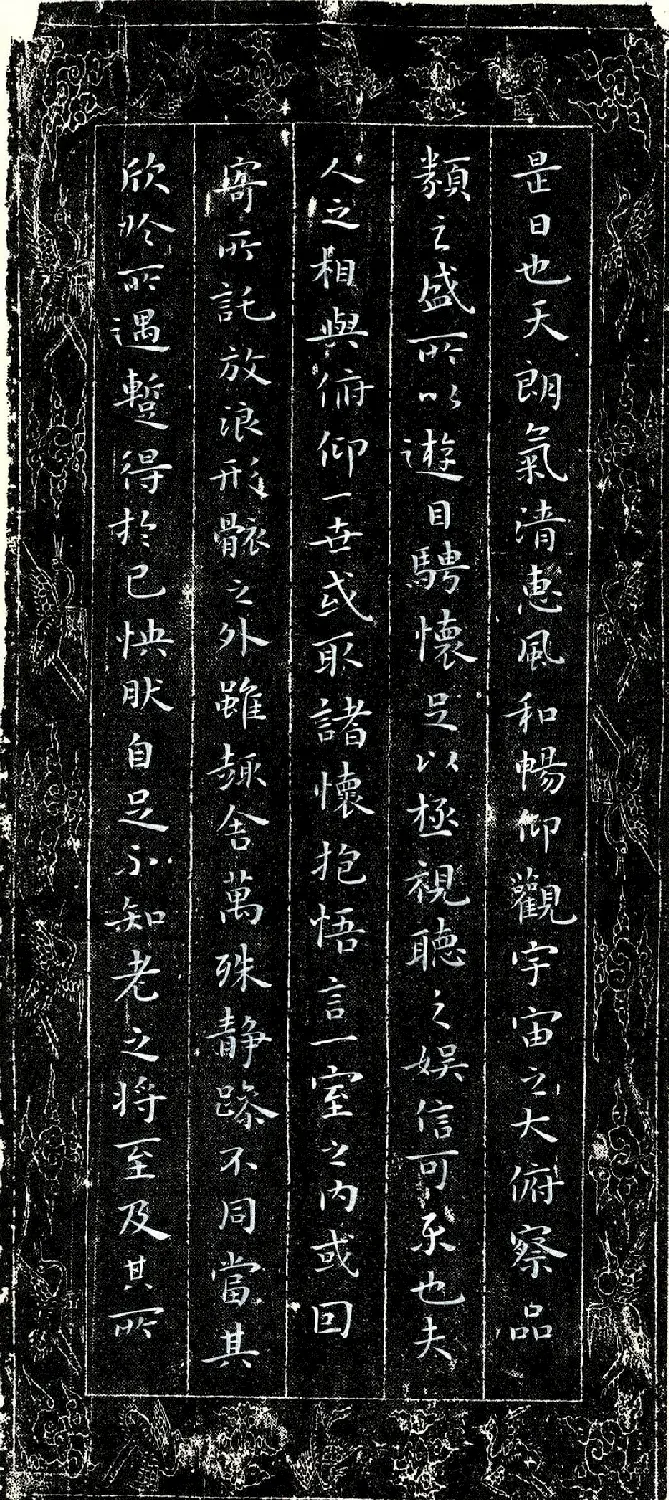 是日也天朗氣清惠風和暢仰觀宇宙之大俯察品
類之盛所以遊目騁懷足以極視聽之娛信可樂也夫
人之相與俯仰一世或取諸懷抱悟言一室之內或回
寄所託放浪形骸之外雖趣舍萬殊靜躁不同當其
欣於所遇暫得於己怏然自足不知老之將至及其所